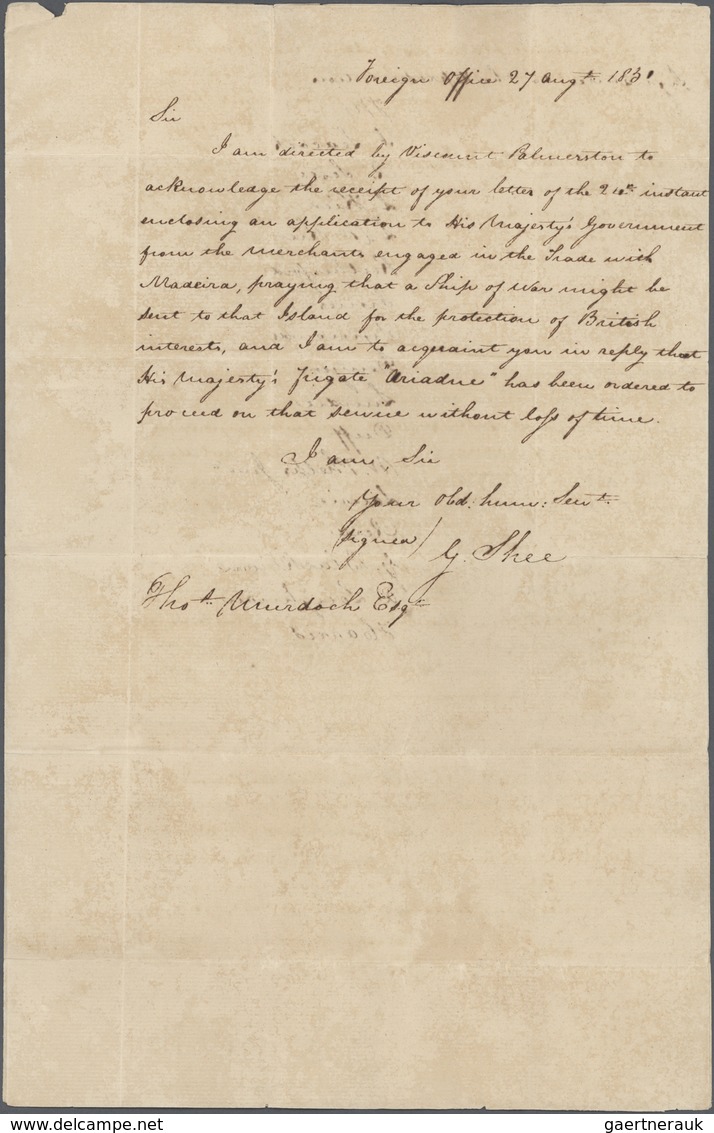 Foreign Office 27 Augt. 1831
Sir
I am directed by Viscount Palmerston to
acknowledge the receipt of your letter of the instant
enclosing an application to His Majesty's Government
from the Merchants engaged in the Trade with
Madeira, praying that a Ship of War might be
sent to that Island for the protection of British
interests, and I am to acquaint you in reply that
His Majesty's Frigate "Ariadne" has been ordered to
proceed on that service without loss of time.
I am, Sir
Your Obd: hum: Servt.
(signed) G. Shee
Thos. Murdoch Esqr
www.delcampe.net
gaertnerauk